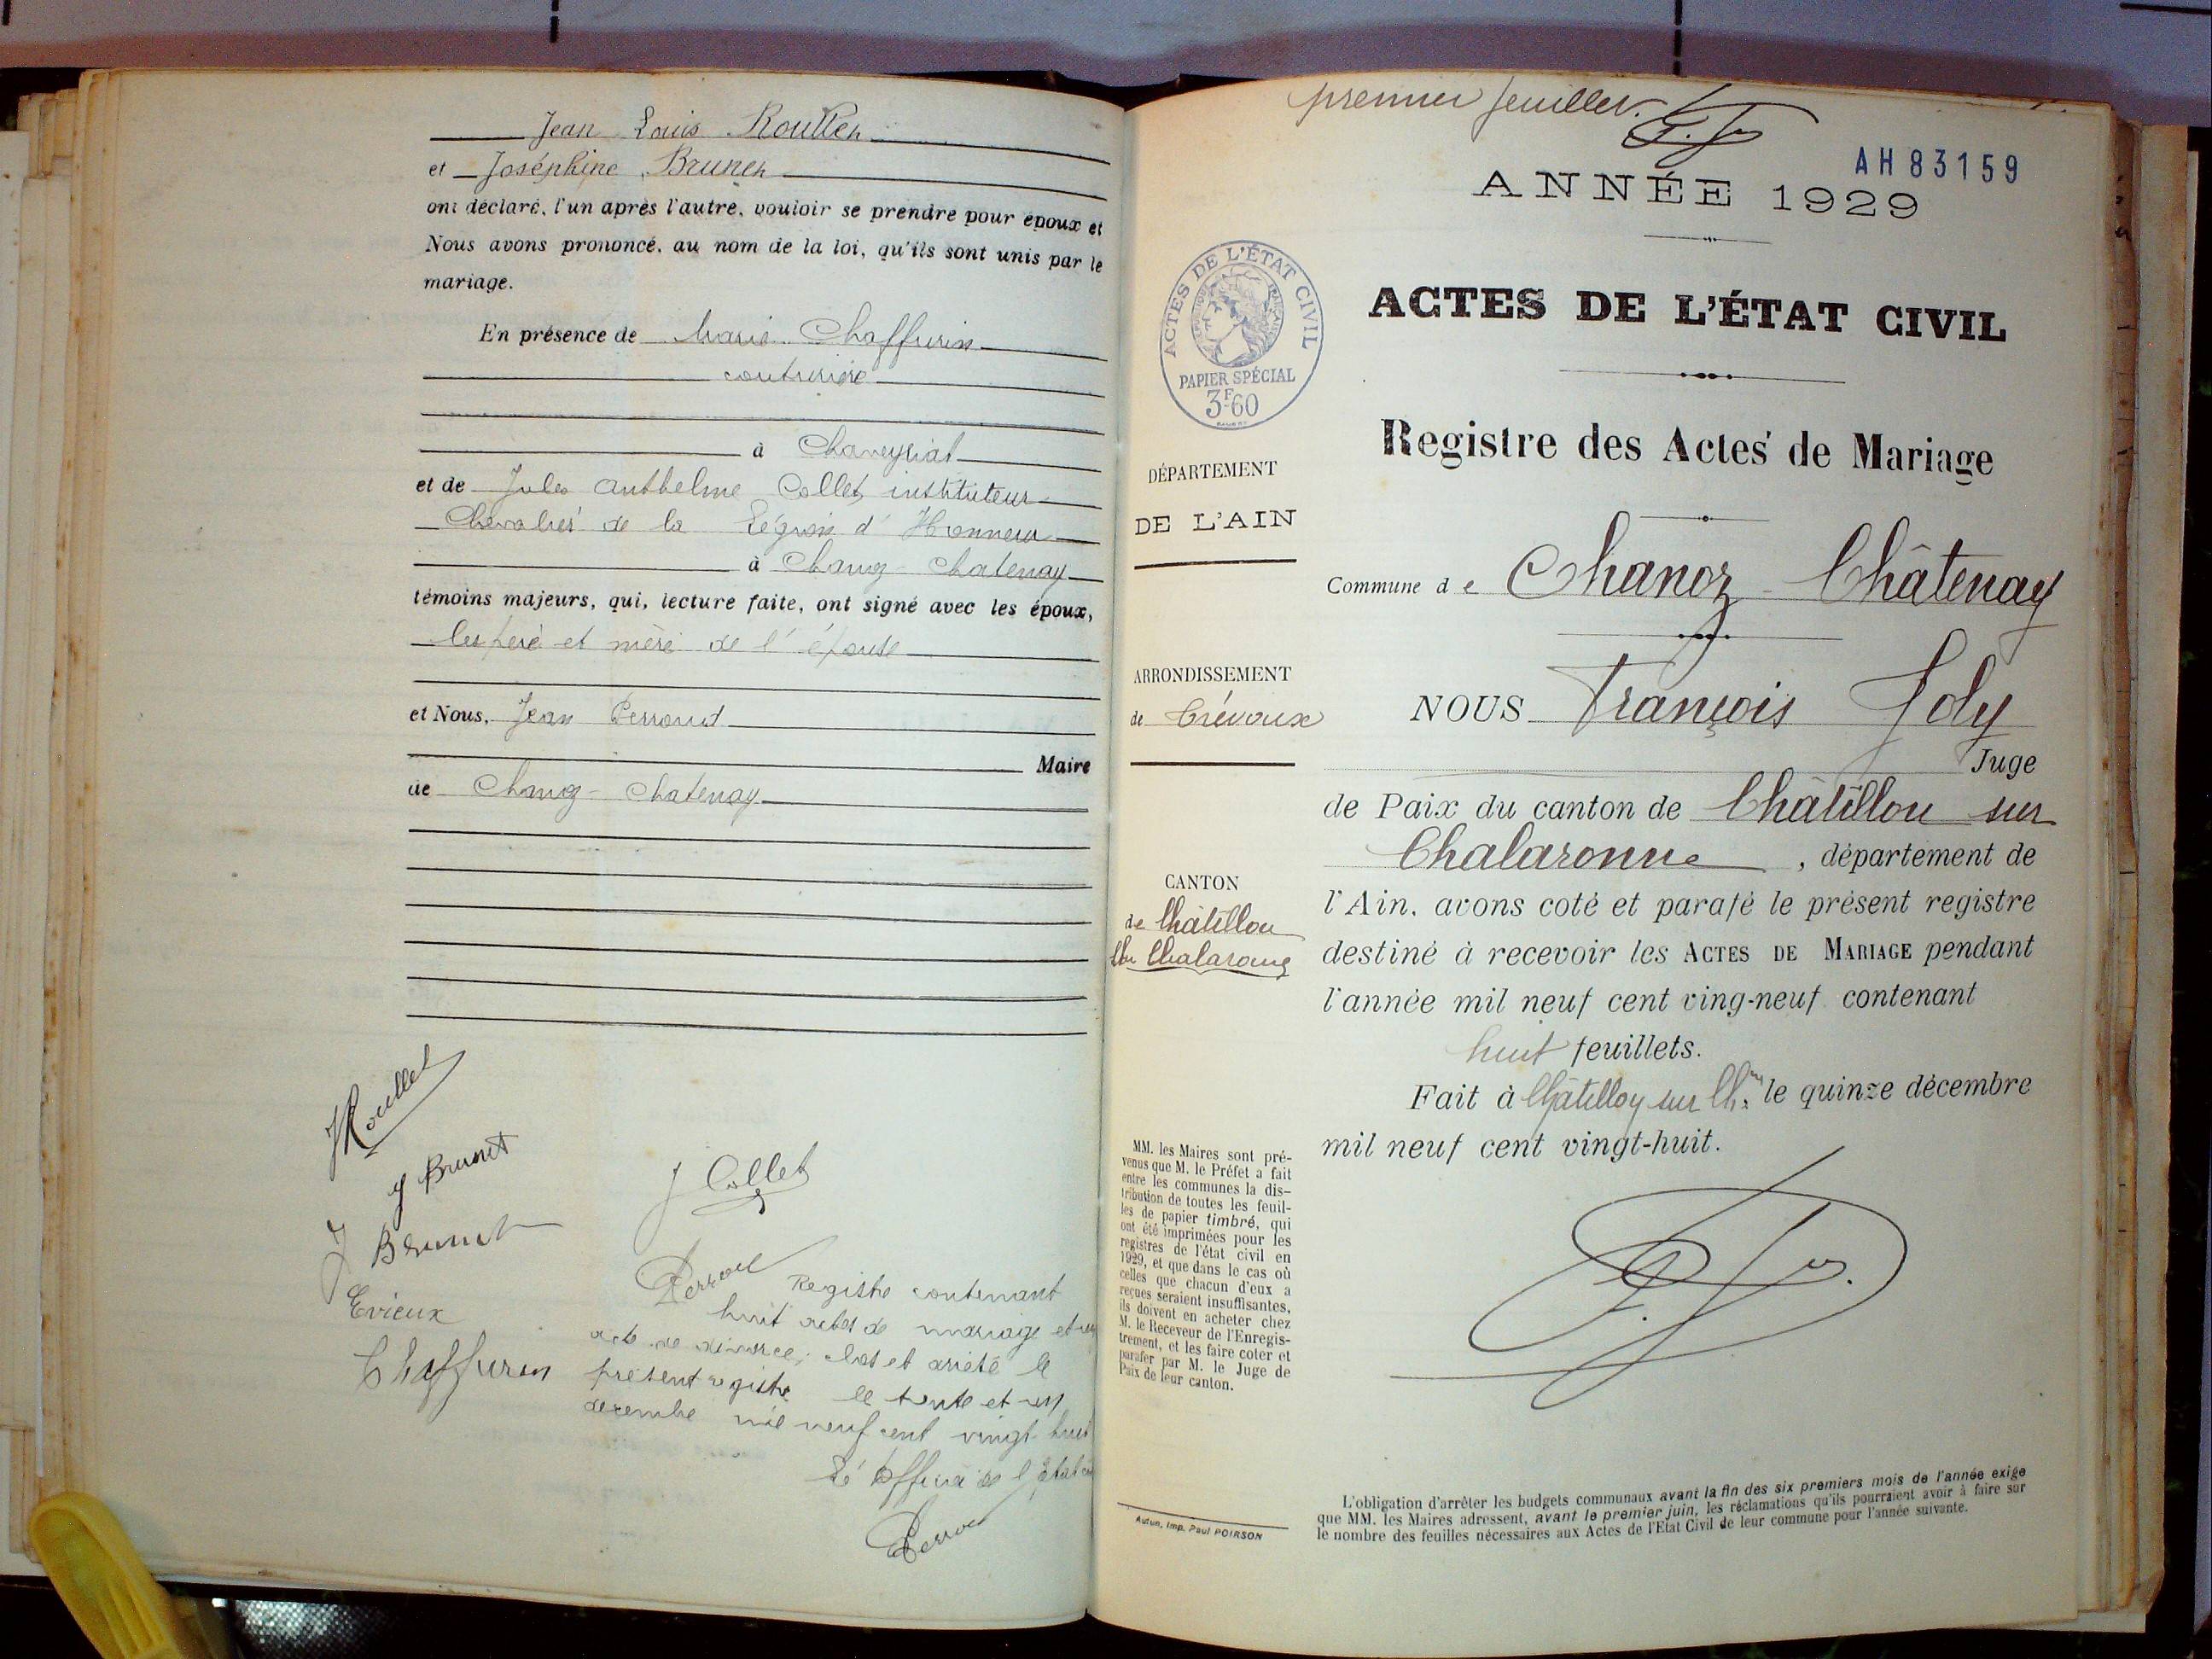 Jean Louis Roullet
et Joséphine Brunet
ont déclaré, l'un après l'autre, vouloir se prendre pour époux et
Nous avons prononcé, au nom de la loi, qu'ils sont unis par le
mariage.
En présence de Marie Chaffurin
couturière
à Chaveyriat
et de Jules Anthelme Collet instituteur
Chevalier de la Légion d'Honneur
à Chanoz-Chatenay
témoins majeurs, qui, lecture faite, ont signé avec les époux,
les père et mère de l'épouse
et Nous, Jean Perroud
Maire
de Chanoz-Chatenay
JRoullet
J Brunet
J Brunet
Evieux
Chaffurin
J Collet
Perroud
Registre contenant
huit actes de mariage et un
acte de divorce, clos et arrêté le
présent registre le trente et un
décembre mil neuf cent vingt huit
Perroud
premier feuillet.
AH 83159
ANNÉE 1929
ACTES DE L'ÉTAT CIVIL
PAPIER SPÉCIAL
3F60
ACTES DE L'ÉTAT CIVIL
Registre des Actes de Mariage
DÉPARTEMENT
DE L'AIN
Commune de Chanoz-Châtenay
ARRONDISSEMENT
de Trévoux
NOUS François Joly
Juge
de Paix du canton de Châtillon sur
Chalaronne, département de
CANTON
de Châtillon
sur Chalaronne
l'Ain, avons coté et parafé le présent registre
destiné à recevoir les ACTES DE MARIAGE pendant
l'année mil neuf cent ving-neuf contenant
huit feuillets.
Fait à Châtillon sur Ch.ne le quinze décembre
mil neuf cent vingt-huit.
MM. les Maires sont pré-
venus que M. le Préfet a fait
entre les communes la dis-
tribution de toutes les feuil-
les de papier timbré, qui
ont été imprimées pour les
registres de l'état civil en
1929, et que dans le cas où
celles que chacun d'eux a
reçues seraient insuffisantes,
ils doivent en acheter chez
M. le Receveur de l'Enregis-
trement, et les faire coter et
parafer par M. le Juge de
Paix de leur canton.
Autun, Imp. Paul POIRSON
L'obligation d'arrêter les budgets communaux avant la fin des six premiers mois de l'année exige
que MM. les Maires adressent, avant le premier juin, les réclamations qu'ils pourraient avoir à faire sur
le nombre des feuilles nécessaires aux Actes de l'Etat Civil de leur commune pour l'année suivante.